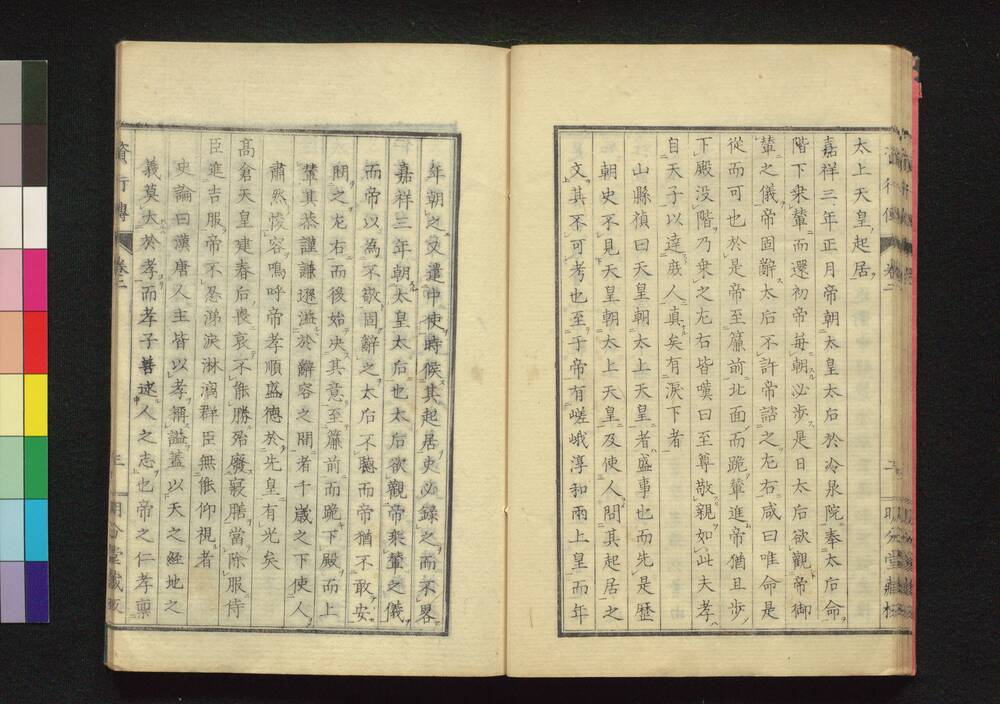 太上天皇起居
嘉祥三年正月帝朝太皇太后於冷泉院奉太后命
階下乘輦而還初帝每朝必步是日太后欲觀帝御
輦之儀帝固辭太后不許帝諮之左右咸曰唯命是
從而可也於是帝至簾前北面而跪輦進帝猶且步
下殿没階乃乘之左右皆嘆曰至尊敬親如此夫孝
自天子以達庶人真矣有淚下者
山縣禎曰天皇朝太上天皇者盛事也而先是歷
朝史不見天皇朝太上天皇及使人問其起居之
文其不可考也至于帝有嵯峨淳和兩上皇而年
年朝之又遣中使時候其起居史必録之而不畧
嘉祥三年朝太皇太后也太后欲觀帝乘輦之儀
而帝以為不敬固辭之太后不聽而帝猶不敢安
問之左右而後始决其意至簾前而跪下殿而上
輦其恭謹謙遜溢於辭容之間者千歲之下使人
肅然悛容嗚呼帝孝順盛德於先皇有光矣
高倉天皇建春后喪哀不能勝殆廢寢膳當除服侍
臣進吉服帝不忍涕淚淋漓群臣無能仰視者
史論曰漢唐人主皆以孝稱謚蓋以天之經地之
義莫大於孝而孝子善述人之志也帝之仁孝禀
資行傳
卷二
三
明分堂藏板